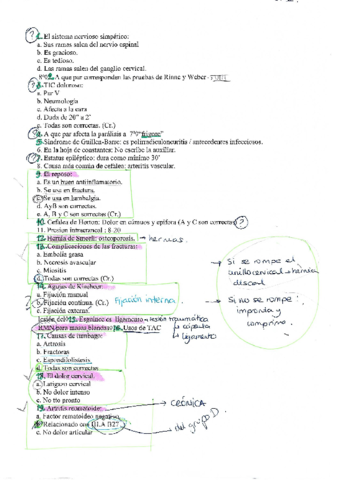 ? 1. El sistema nervioso simpático:
a. Sus ramas salen del nervio espinal
b. Es gracioso.
c. Es tedioso.
d. Las ramas salen del ganglio cervical.
A que par corresponden las pruebas de Rinne y Weber
? TIC doloroso:
a. Par V
b. Neumología
c. Afecta a la cara
d. Dudo de 20" a 2'
e. Todas son correctas. (Cr.)
A que par afecta la parálisis a
5. Síndrome de Guillen-Barre: es polirradiculoneuritis / antecedentes infecciosos.
6. En la hoja de constantes: No escribe la auxiliar.
7. Estatus epiléptico: dura como mínimo 30'
8. Causa más común de cefalea: arteritis vascular.
9. El reposo:
a. Es un buen antiinflamatorio.
b. Se usa en fractura.
c. Se usa en lumbalgia.
d. AyB son correctas
e. A, B y C son correctas (Cr.)
10. Cefalea de Horton: Dolor en cánusos y epífora (A y C son correctas) ?
11. Presión intracraneal : 8-20
12. Hernia de Smorh: osteoporosis. → hernias.
13. Complicaciones de las fracturas:
a. Embolia grasa
b. Necrosis avascular
c. Miositis
d. Todas son correctas (Cr.)
14. Agujas de Kischner:
a. Fijación manual
? b. Fijación continua. (Cr.) Fijación interna
c. Fijación externa.
15. Esguince es: ligamento → lesión traumática
RMN para masas blandas: 16. Usos de TAC → cápsula → ligamento
17. Causas de lumbago:
a. Artrosis
b. Fracturas
c. Espondilolistesis
d. Todas son correctas
18. El dolor cervical.
a. Latigazo cervical
b. No dolor intenso
c. No tto pronto
19. Artritis reumatoide: → CRÓNICA
a. Factor reumatoideo negativo.
b. Relacionado con HLA B27 → del grupo D.
c. No dolor articular
Si se rompe el
anillo cervical → hernia
discal
Si no se rompe:
impronta y
comprime.